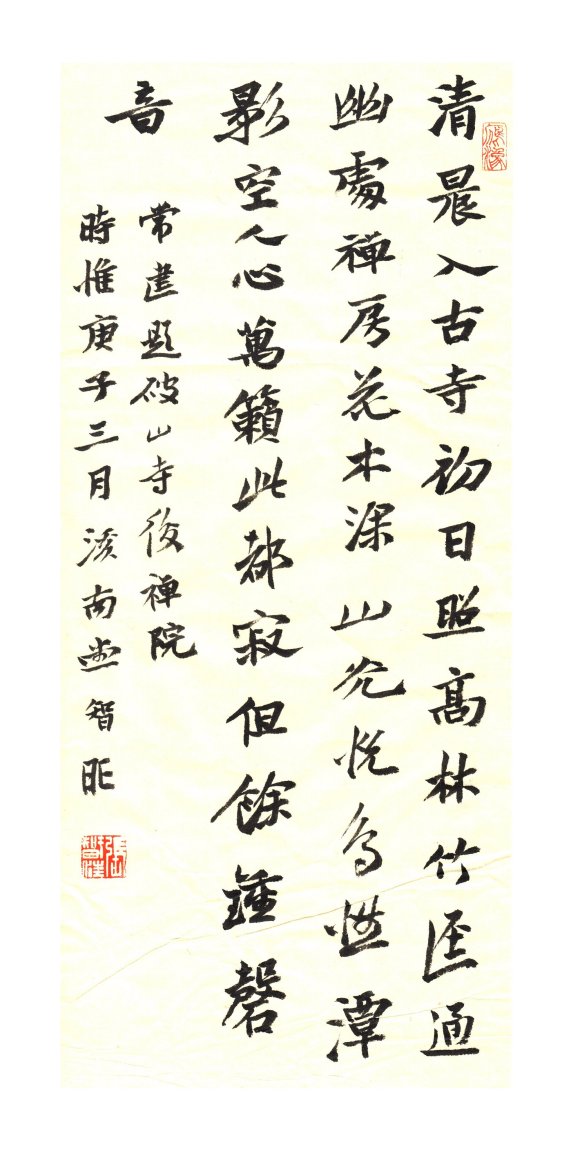 清晨入古寺初日照高林竹徑通
幽處禅房花木深山光悅鳥性潭
影空人心萬籟此都寂但餘鍾磬
音
常建題破山寺後禅院
時惟庚子三月南智